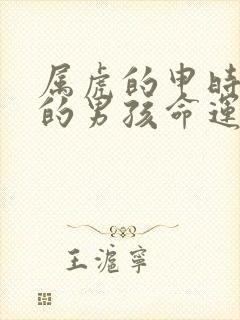 属虎的申时
的男孩命运
王滬寧